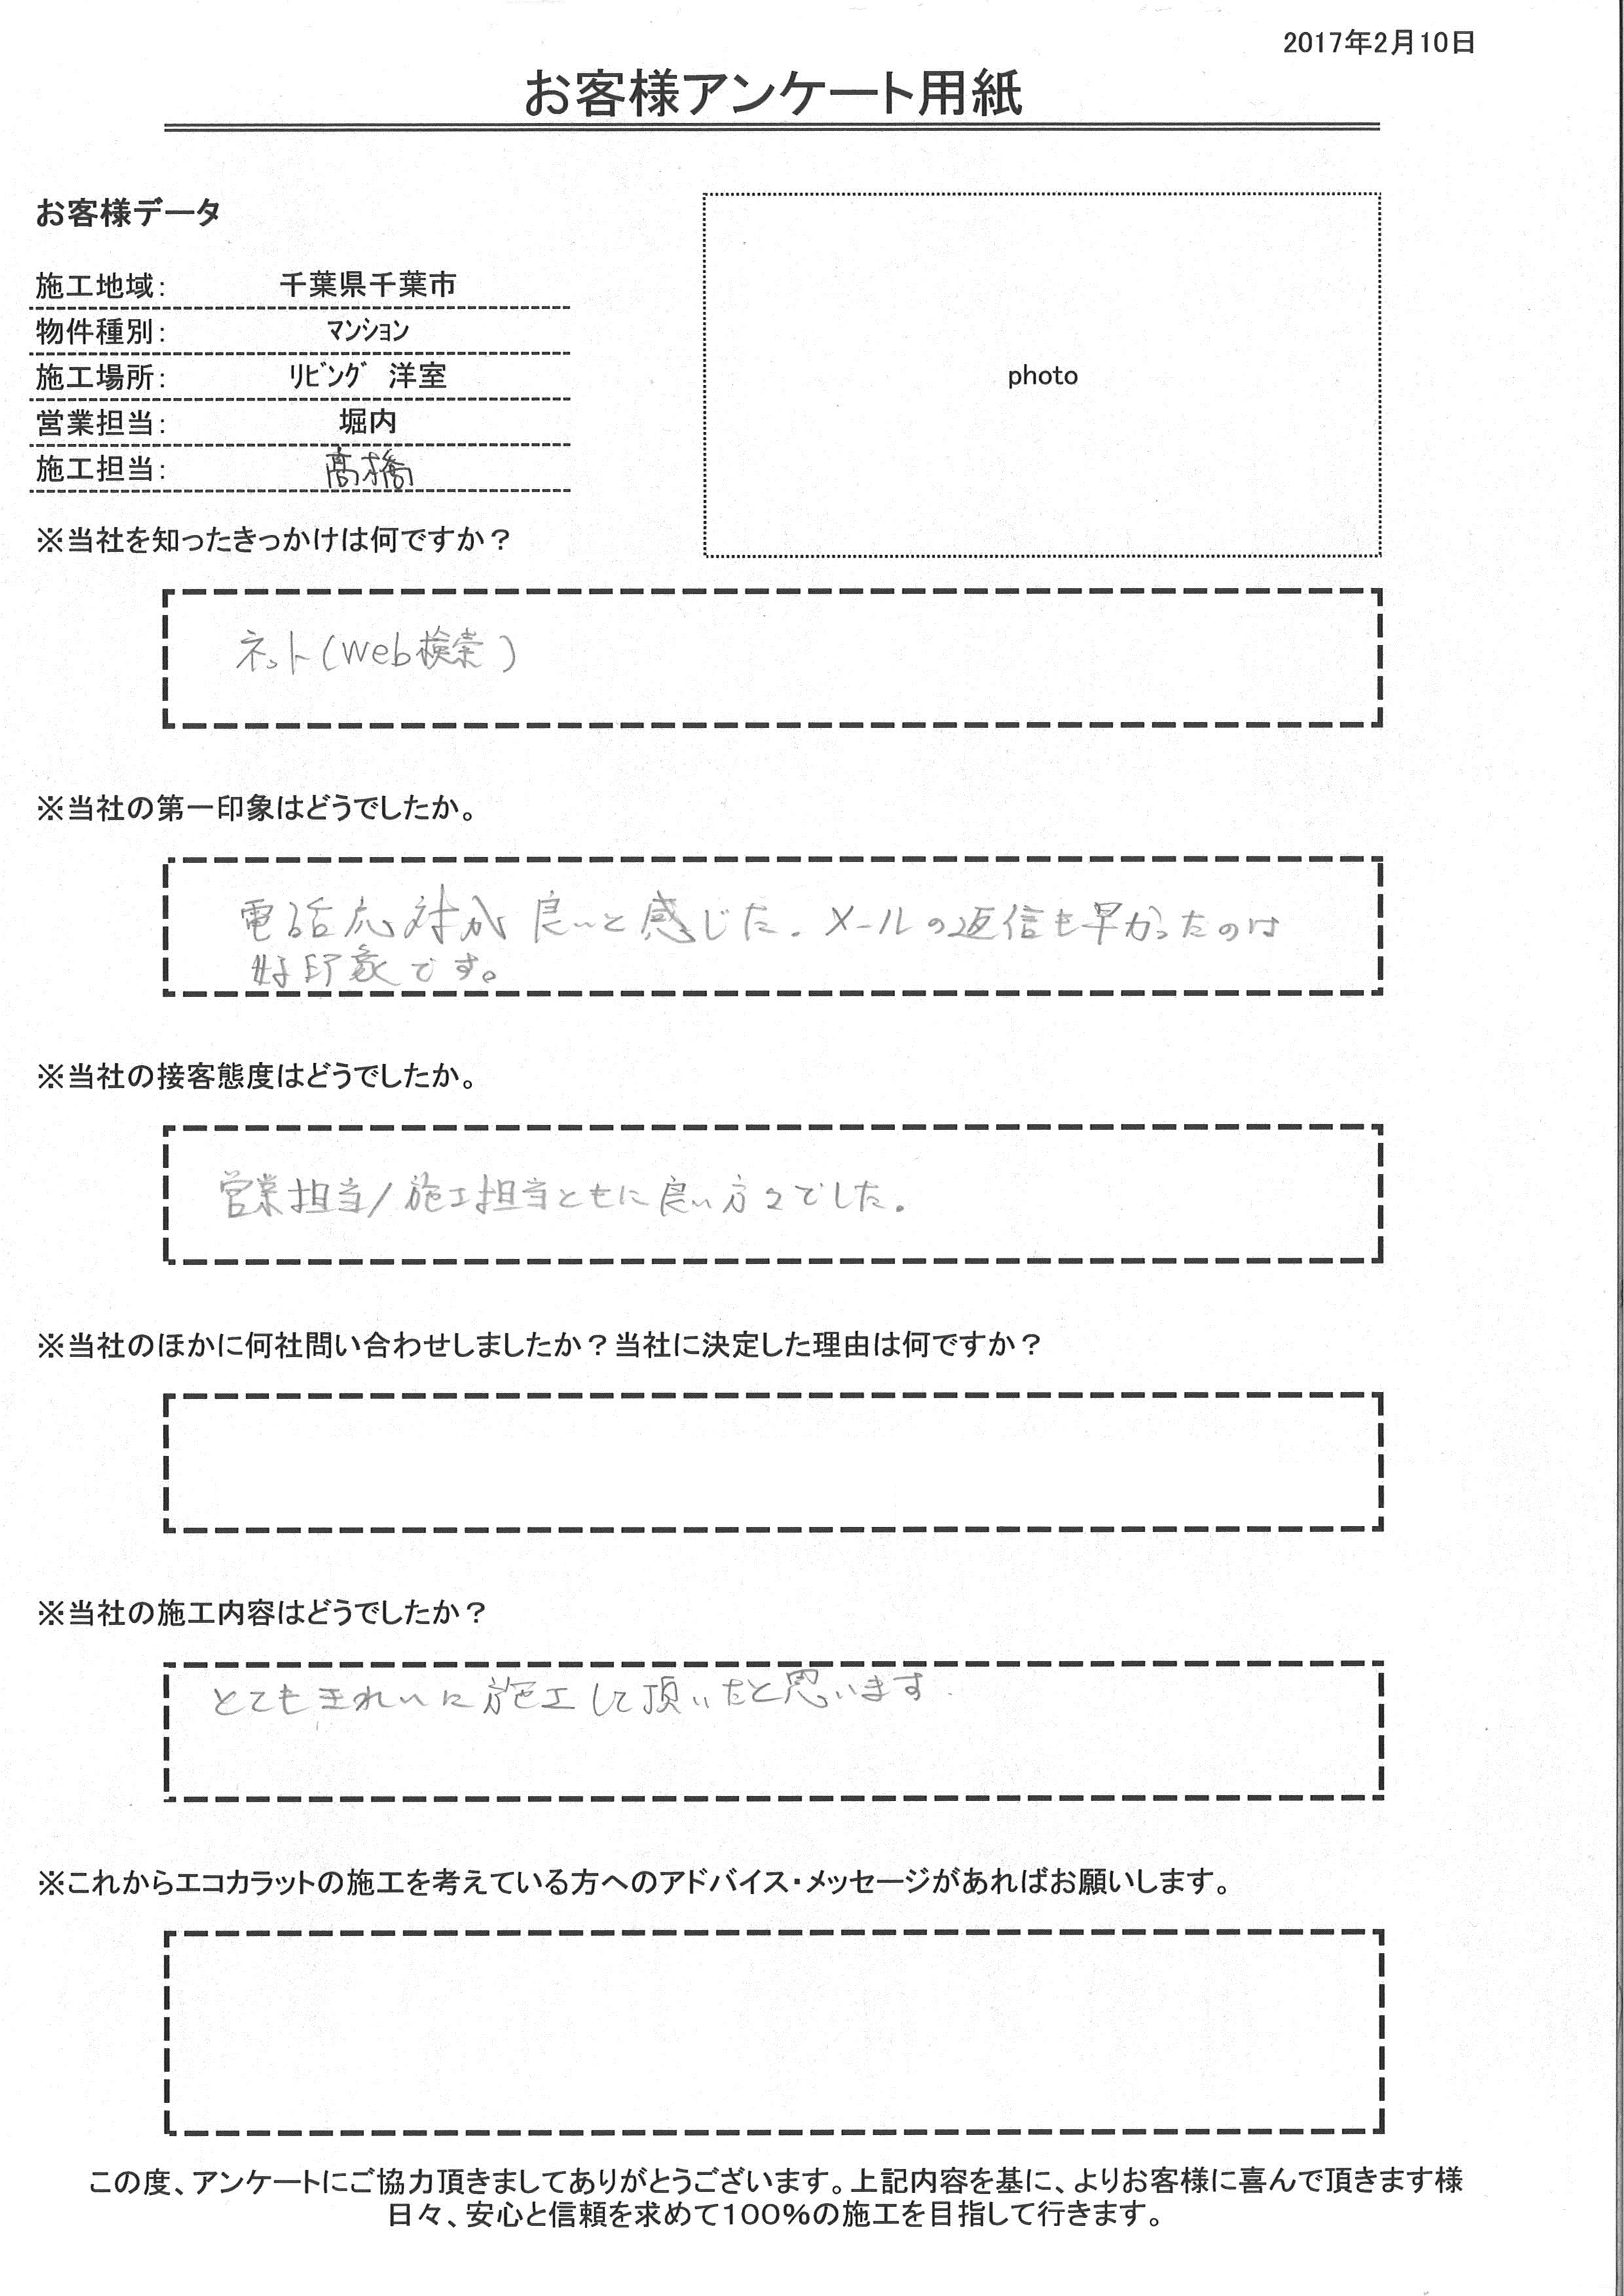 2017年2月10日
お客様アンケート用紙
お客様データ
施工地域： 千葉県千葉市
物件種別： ﾏﾝｼｮﾝ
施工場所： ﾘﾋﾞﾝｸﾞ 洋室
営業担当： 堀内
施工担当： 髙橋
photo
※当社を知ったきっかけは何ですか？
ネット(web検索)
※当社の第一印象はどうでしたか。
電話応対が良いと感じた。メールの返信も早かったのは
好印象です。
※当社の接客態度はどうでしたか。
営業担当/施工担当ともに良い方々でした。
※当社のほかに何社問い合わせしましたか？当社に決定した理由は何ですか？
※当社の施工内容はどうでしたか？
とてもきれいに施工して頂いたと思います.
※これからエコカラットの施工を考えている方へのアドバイス・メッセージがあればお願いします。
この度、アンケートにご協力頂きましてありがとうございます。上記内容を基に、よりお客様に喜んで頂きます様
日々、安心と信頼を求めて100%の施工を目指して行きます。